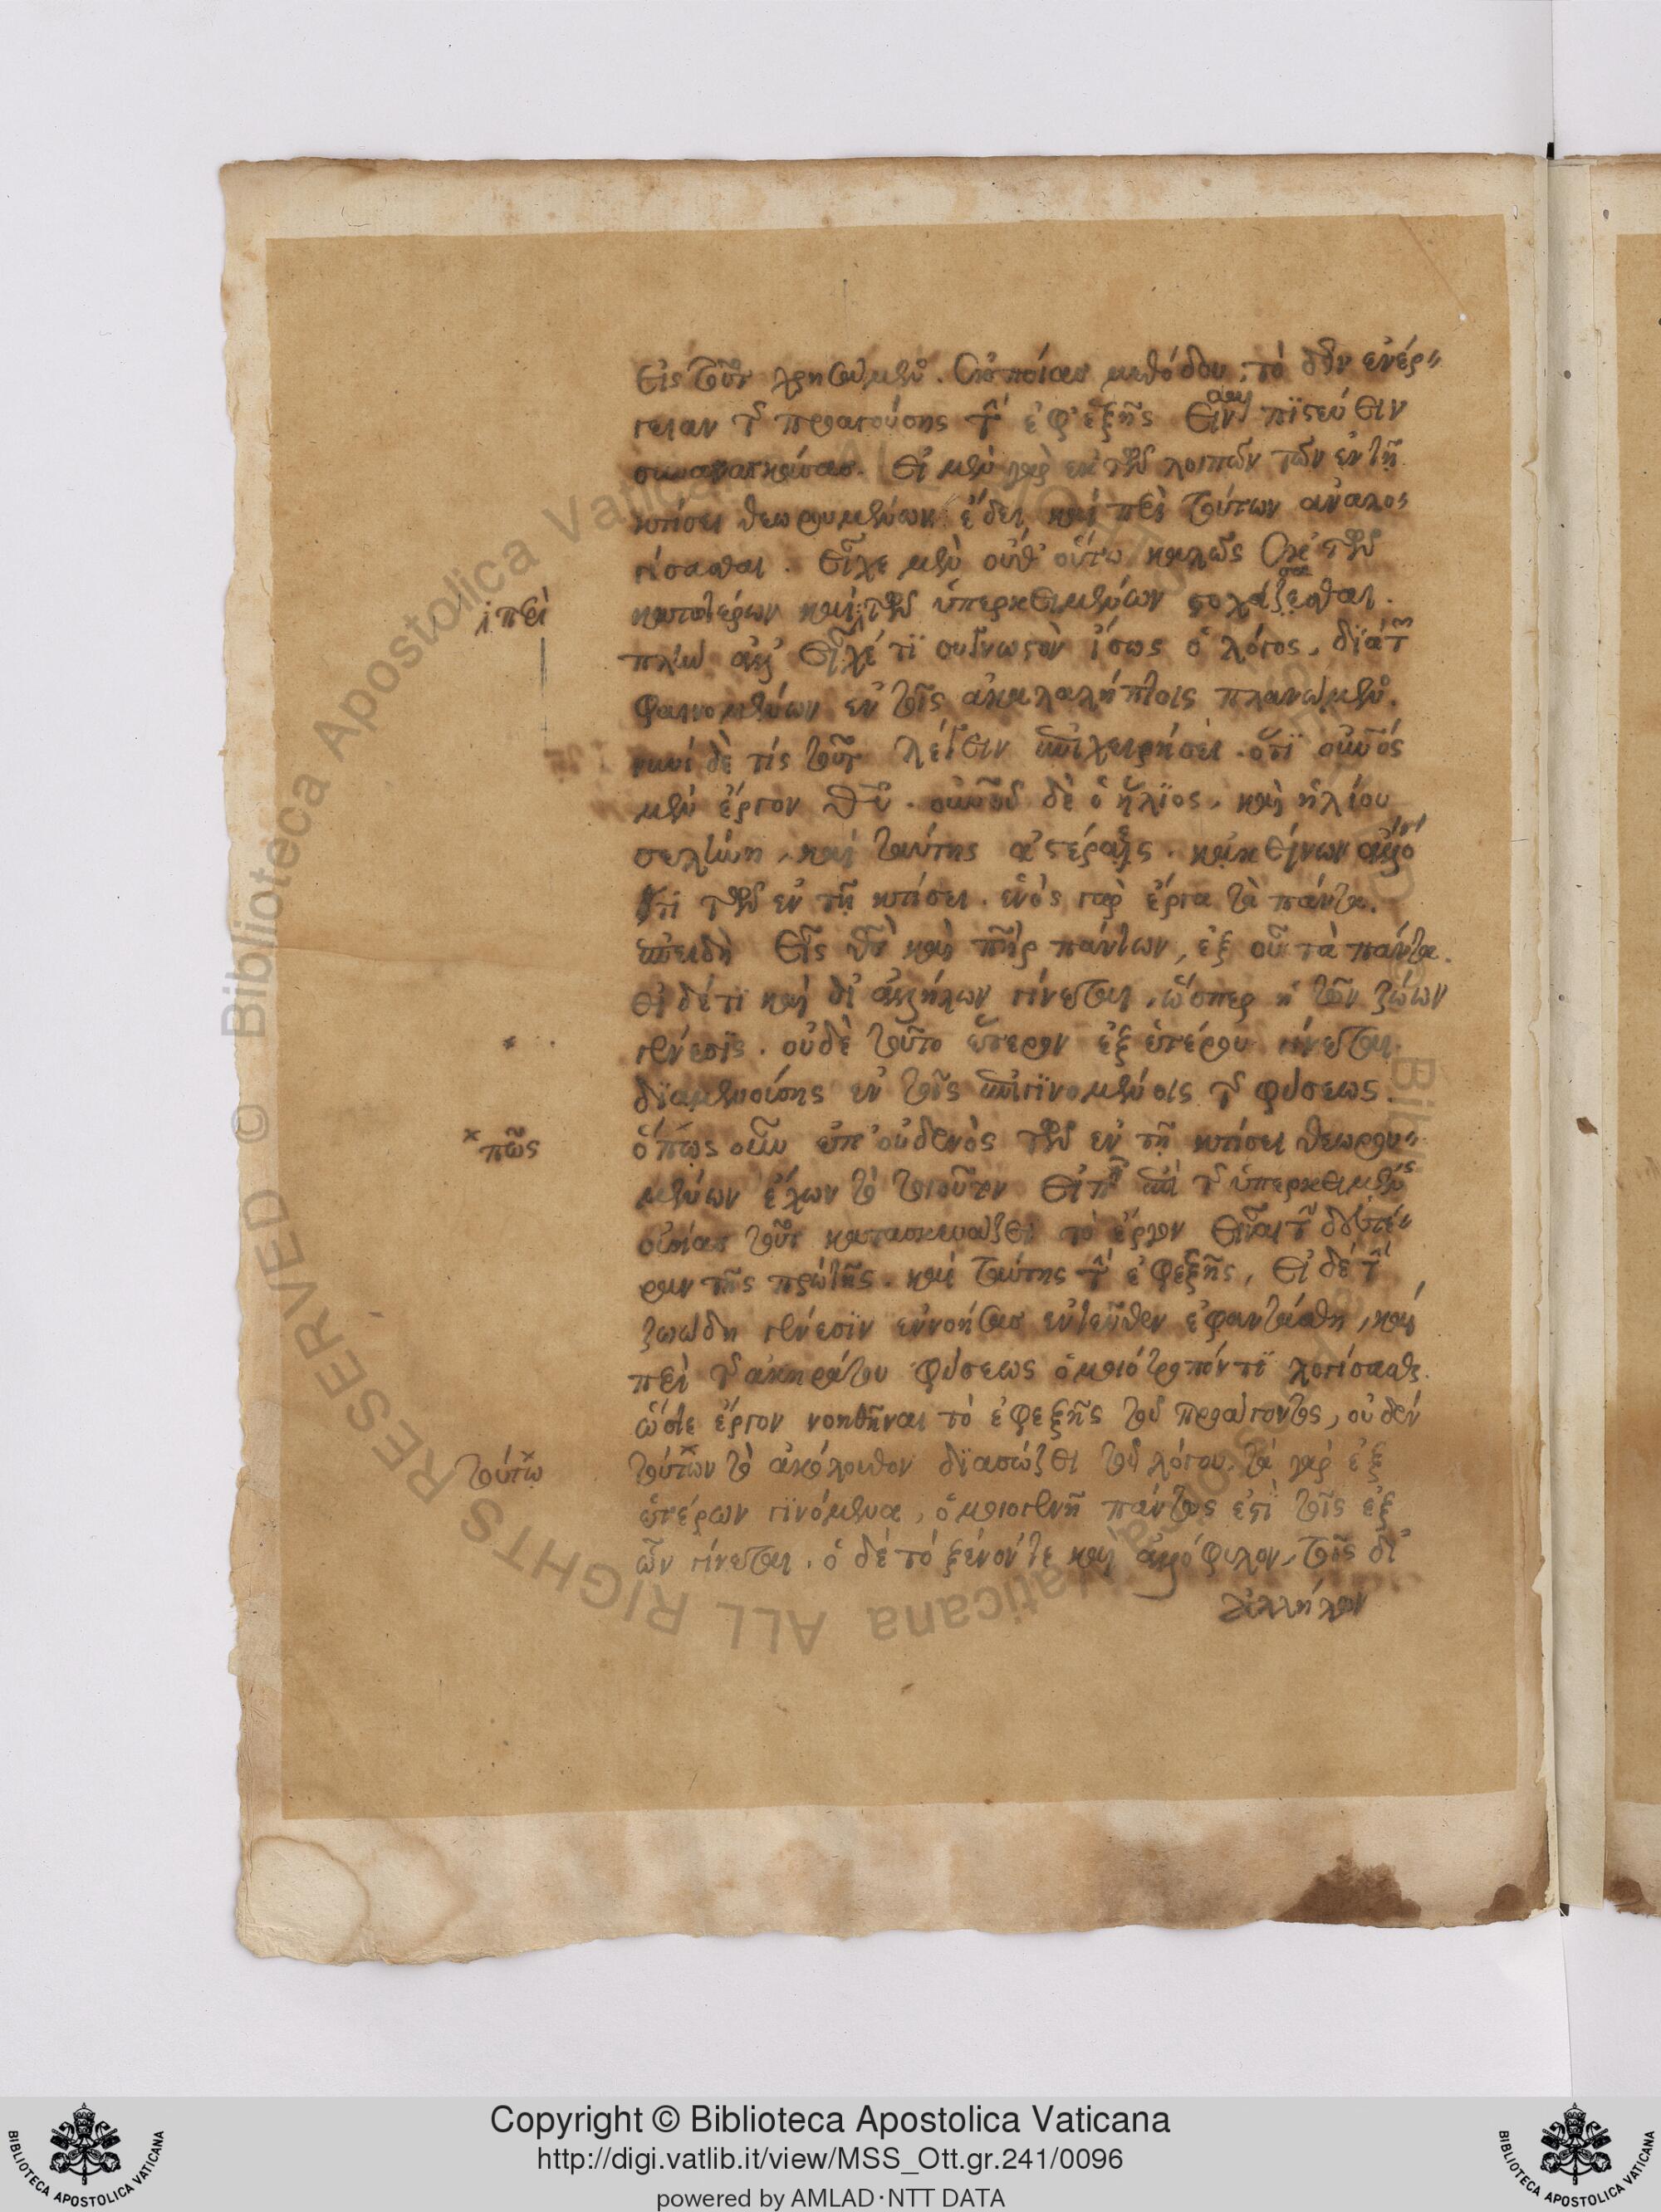 εἰς τοῦτο χρησάμενος. ἐκ ποίας μεθόδου; τὸ τὴν ἐνέρ-
γειαν τῆς προαγούσης τὴν ἐφεξῆς εἶναι πιστεύειν
συναναγκάσας. εἰ μὲν γὰρ ἐκ τῶν λοιπῶν τῶν ἐν τῇ
κτίσει θεωρουμένων ἔδει καὶ περὶ τούτων ἀναλο-
γίσασθαι. εἶχε μὲν οὐδ' οὕτω καλῶς ἐκ τῶν
κατωτέρων καὶ τῶν ὑπερκειμένων στοχάζεσθαι.
ἢ περὶ
πλὴν ἀλλ' εἶχέ τι συγγνωστὸν ἴσως ὁ λόγος, διὰ τῶν
φαινομένων ἐν τοῖς ἀκαταλήπτοις πλανώμενος.
νυνὶ δὲ τίς τοῦτο λέγειν ἐπιχειρήσει. ὅτι οὐρανὸς
μὲν ἔργον θεοῦ. οὐρανοῦ δὲ ὁ ἥλιος, καὶ ἡλίου
σελήνη, καὶ ταύτης ἀστέρες. κἀκείνων ἄλλο
τι τῶν ἐν τῇ κτίσει. ἑνὸς γὰρ ἔργα τὰ πάντα.
ἐπειδὴ εἷς θεὸς καὶ πατὴρ πάντων, ἐξ οὗ τὰ πάντα.
εἰ δέ τι καὶ δι' ἀλλήλων γίνεται, ὥσπερ ἡ τῶν ζώων
γένεσις. οὐδὲ τοῦτο ἕτερον ἐξ ἑτέρου γίνεται.
διαμενούσης ἐν τοῖς ἐπιγινομένοις τῆς φύσεως.
ὅπως οὖν ἐπ' οὐδενὸς τῶν ἐν τῇ κτίσει θεωρου-
πῶς
μένων ἔχων τὸ τοιοῦτον εἰπεῖν ἐπὶ τῆς ὑπερκειμένης
οὐσίας τοῦτο κατασκευάζει τὸ ἔργον εἶναι τὴν δευτέ-
ραν τῆς πρώτης. καὶ ταύτης τὴν ἐφεξῆς, εἰ δὲ τὴν
ζωώδη γένεσιν ἐννοήσας ἐντεῦθεν ἐφαντάσθη, καὶ
περὶ τῆς ἀκηράτου φύσεως ὁμοιότροπόν τι λογίσασθαι.
ὥστε ἔργον νοηθῆναι τὸ ἐφεξῆς τοῦ προάγοντος, οὐδὲν
τούτων τὸ ἀκόλουθον διασώζει τοῦ λόγου. τὰ γὰρ ἐξ
τούτῳ
ἑτέρων γινόμενα, ὁμοιογενῆ πάντως ἐστὶ τοῖς ἐξ
ὧν γίνεται. ὁ δὲ τὸ ξένον τε καὶ ἀλλόφυλον, τοῖς δι'
ἀλλήλων
Copyright © Biblioteca Apostolica Vaticana
http://digi.vatlib.it/view/MSS_Ott.gr.241/0096
powered by AMLAD·NTT DATA
BIBLIOTECA APOSTOLICA VATICANA
BIBLIOTECA APOSTOLICA VATICANA